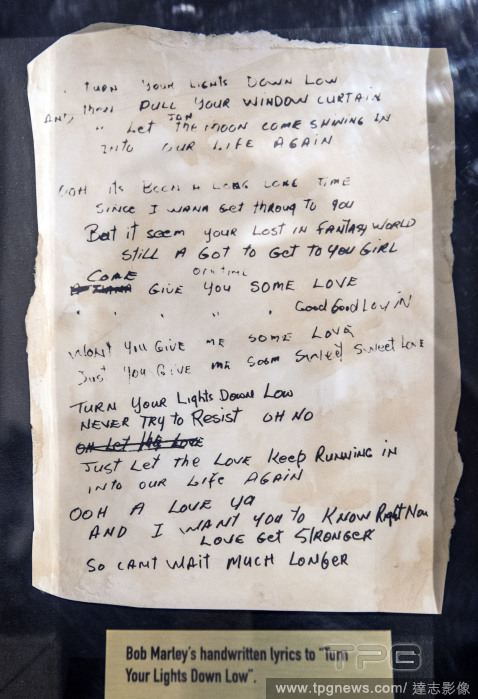 TURN YOUR LIGHTS DOWN LOW
AND then PULL YOUR WINDOW CURTAIN
" Let JAH the MOON COME SHINING IN
INTO OUR LIFE AGAIN
OOH ITS BEEN A LONG LONG TIME
SINCE I WANA Get throug to you
But it seem your LOST IN FANTASY WORLD
STILL A GOT to GET TO YOU GIRL
COME
GIVE YOU SOME LOVE
" " " " " Good Good Lov IN
WONT YOU GIVE ME SOME LOVE
Just YOU GIVE me soom Sweet Sweet LOVE
TURN YOUR LIGHTS DOWN LOW
NEVER TRY to RESIST OH NO
OH Let the LOVE
JUST LET the LOVE KEEP RUNNING IN
INTO OUR LIFE AGAIN
OOH A LOVE YA
AND I WANT YOU to KNOW Right Now
LOVE Get STRONGER
SO CANT WAIT MUCH LONGER
Bob Marley's handwritten lyrics to "Turn
Your Lights Down Low".
TPG
www.tpgnews.com/ 達志影像